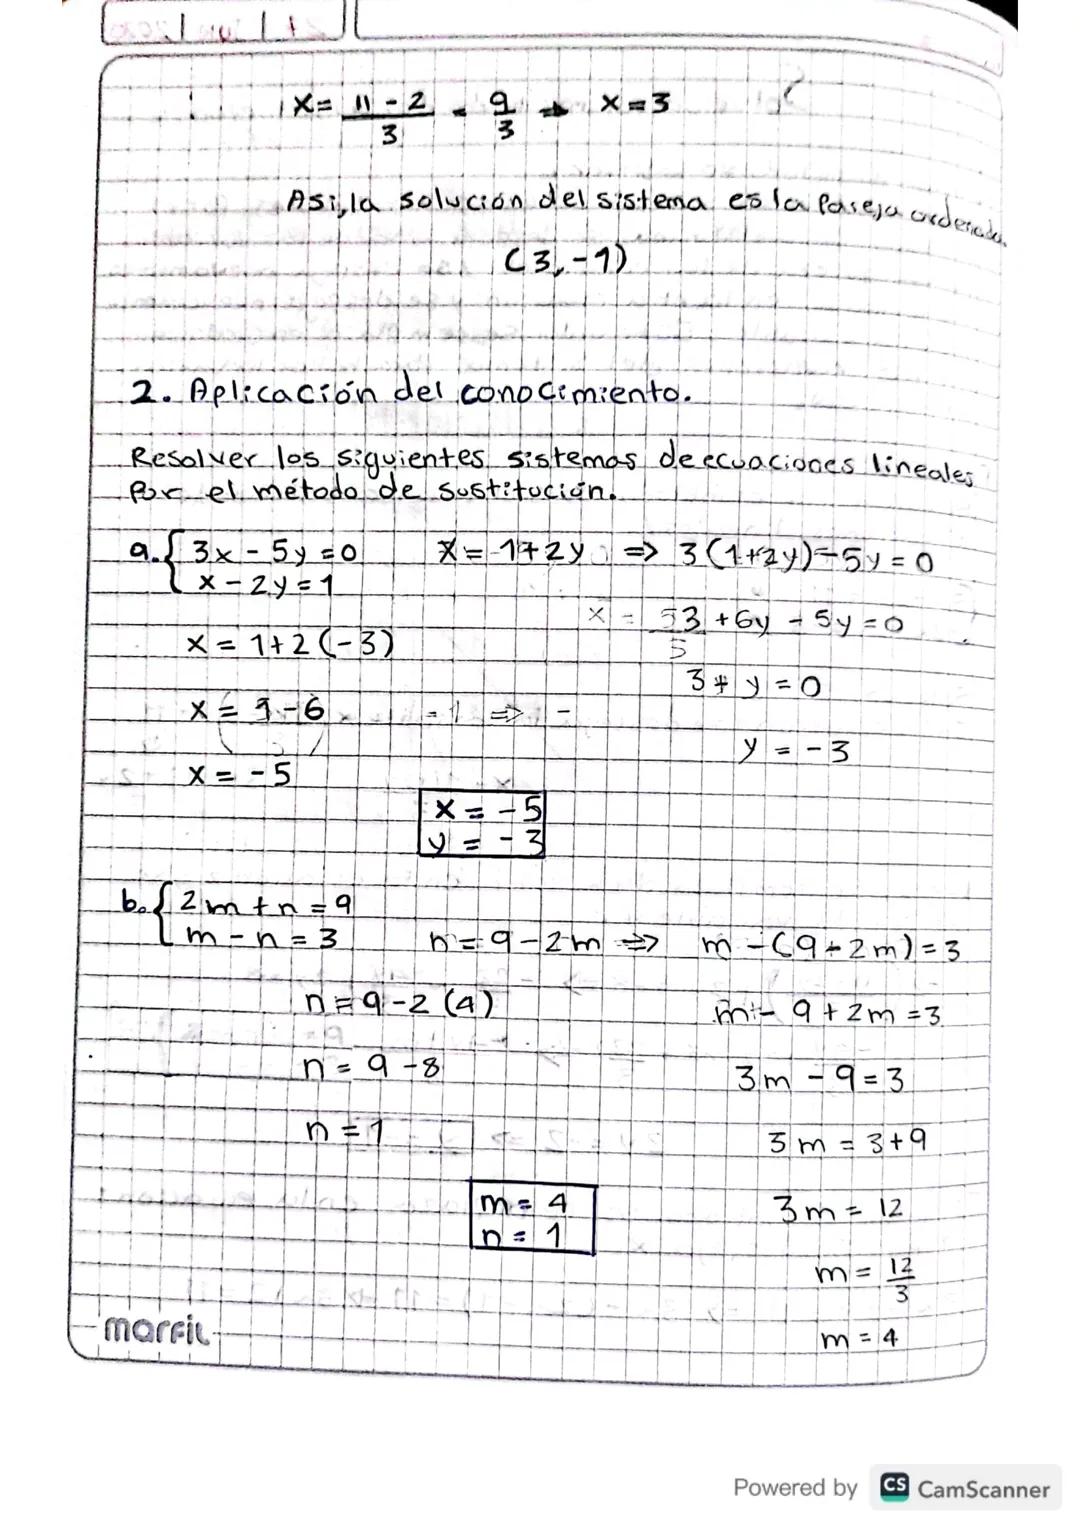 x = 11 - 2 / 3 = 9 / 3 ⇒ x = 3
Asi, la solución del sistema es la Pareja ordenada
(3, -1)
2. Aplicación del conocimiento.
Resolver los siguientes sistemas de ecuaciones lineales
Por el método de sustitución.
a. { 3x - 5y = 0
x - 2y = 1
x = 1 + 2y ⇒ 3(1+2y) - 5y = 0
3 + 6y - 5y = 0
x = 1 + 2(-3)
3 + y = 0
x = 1 - 6
y = -3
x = -5
x = -5
y = -3
b. { 2m + n = 9
m - n = 3
n = 9 - 2m ⇒ m - (9 - 2m) = 3
n = 9 - 2(4)
m - 9 + 2m = 3
n = 9 - 8
3m - 9 = 3
n = 1
3m = 3 + 9
m = 4
n = 1
3m = 12
m = 12 / 3
m = 4
marfil
Powered by CS CamScanner